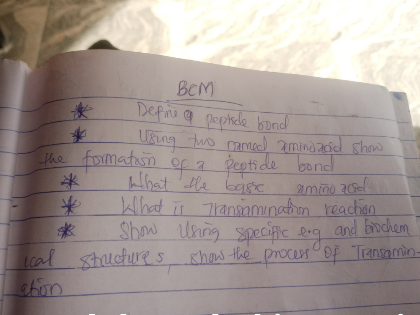 BCM
* Define a peptide bond
* Using two named aminoacid show
the formation of a peptide bond
* What the basic amino acid
* What is Transamination reaction
* Show Using specific e.g and biochem
ical structures, show the process of Transamin-
ation